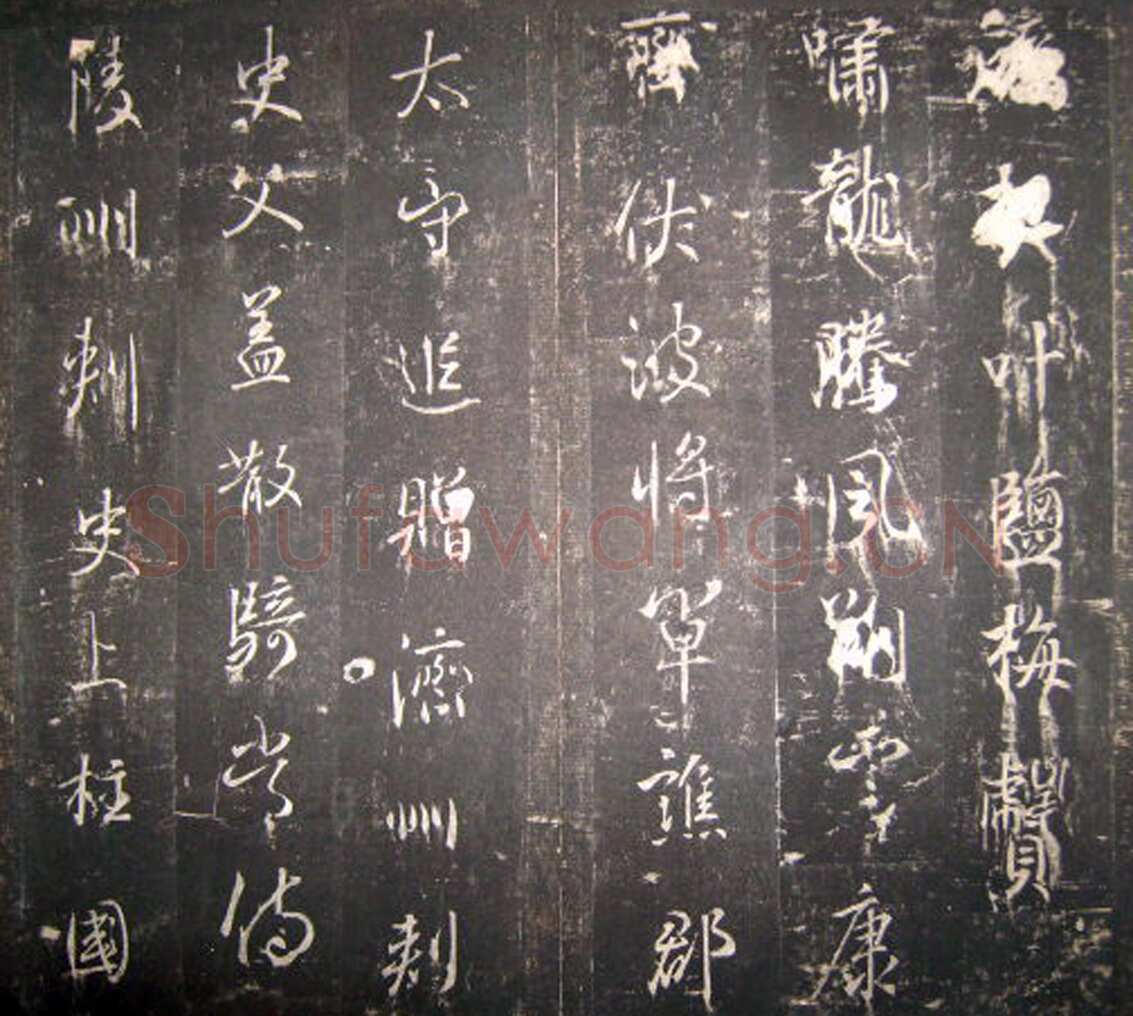 契叶鹽梅
嘯龍騰風康
齊伏波將軍譙郡
太守追贈濟州刺
史父蓋散騎常侍
陵州刺史上柱國
Shufawang.CN